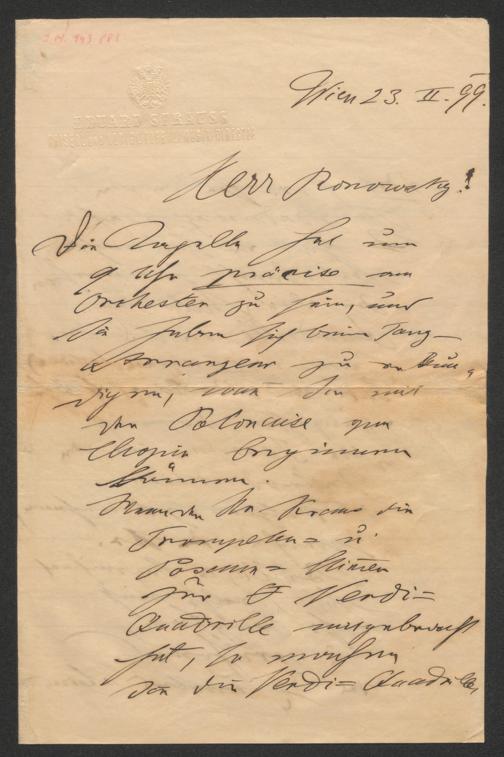 J.N. 143 881
EDUARD STRAUSS
Wien 23. II. 99.
Herr Ronowsky!
Die Capelle hat um
9 Uhr präcise am
Orchester zu sein, und
Sie haben sich beim Tanz-
Arrangeur zu erkun-
digen, wann Sie mit
der Polonaise von
Chopin beginnen
können.
Wenn der Kraus die
Trompeten= u.
Posaun= Stimen
für Verdi=
Quadrille mitgebracht
hat, so machen
Sie die Verdi=Quadrille,